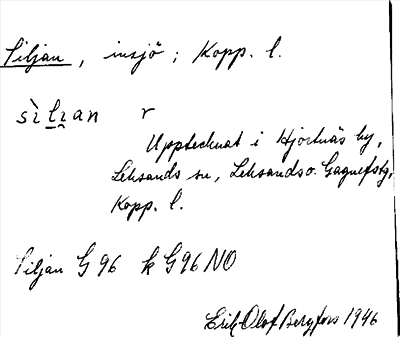 Siljan, insjö; Kopp. l.
sìlian r
Upptecknat i Hjortnäs by,
Leksands sn, Leksands o. Gagnefs tg,
Kopp. l.
Siljan G 96 k G 96 NO
Erik Olof Bergfors 1946